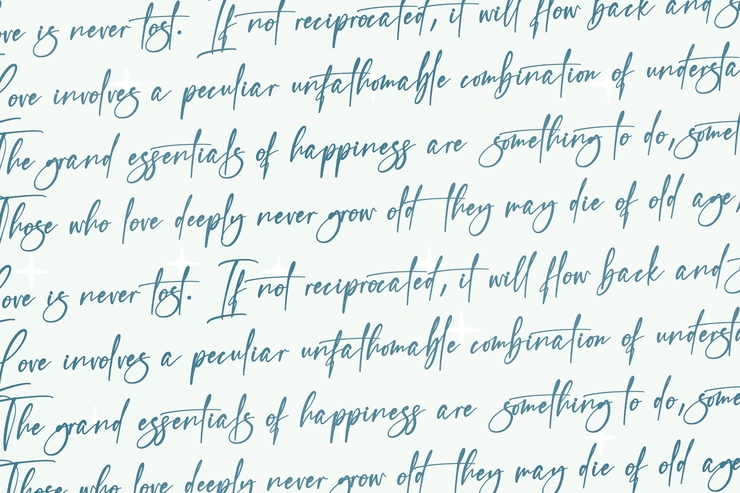 ve is never lost. If not reciprocated, it will flow back and s
Love involves a peculiar unfathomable combination of understa
The grand essentials of happiness are something to do, somet
Those who love deeply never grow old they may die of old age,
ove is never lost. If not reciprocated, it will flow back and s
Love involves a peculiar unfathomable combination of understa
The grand essentials of happiness are something to do, some
Those who love deeply never grow old they may die of old age